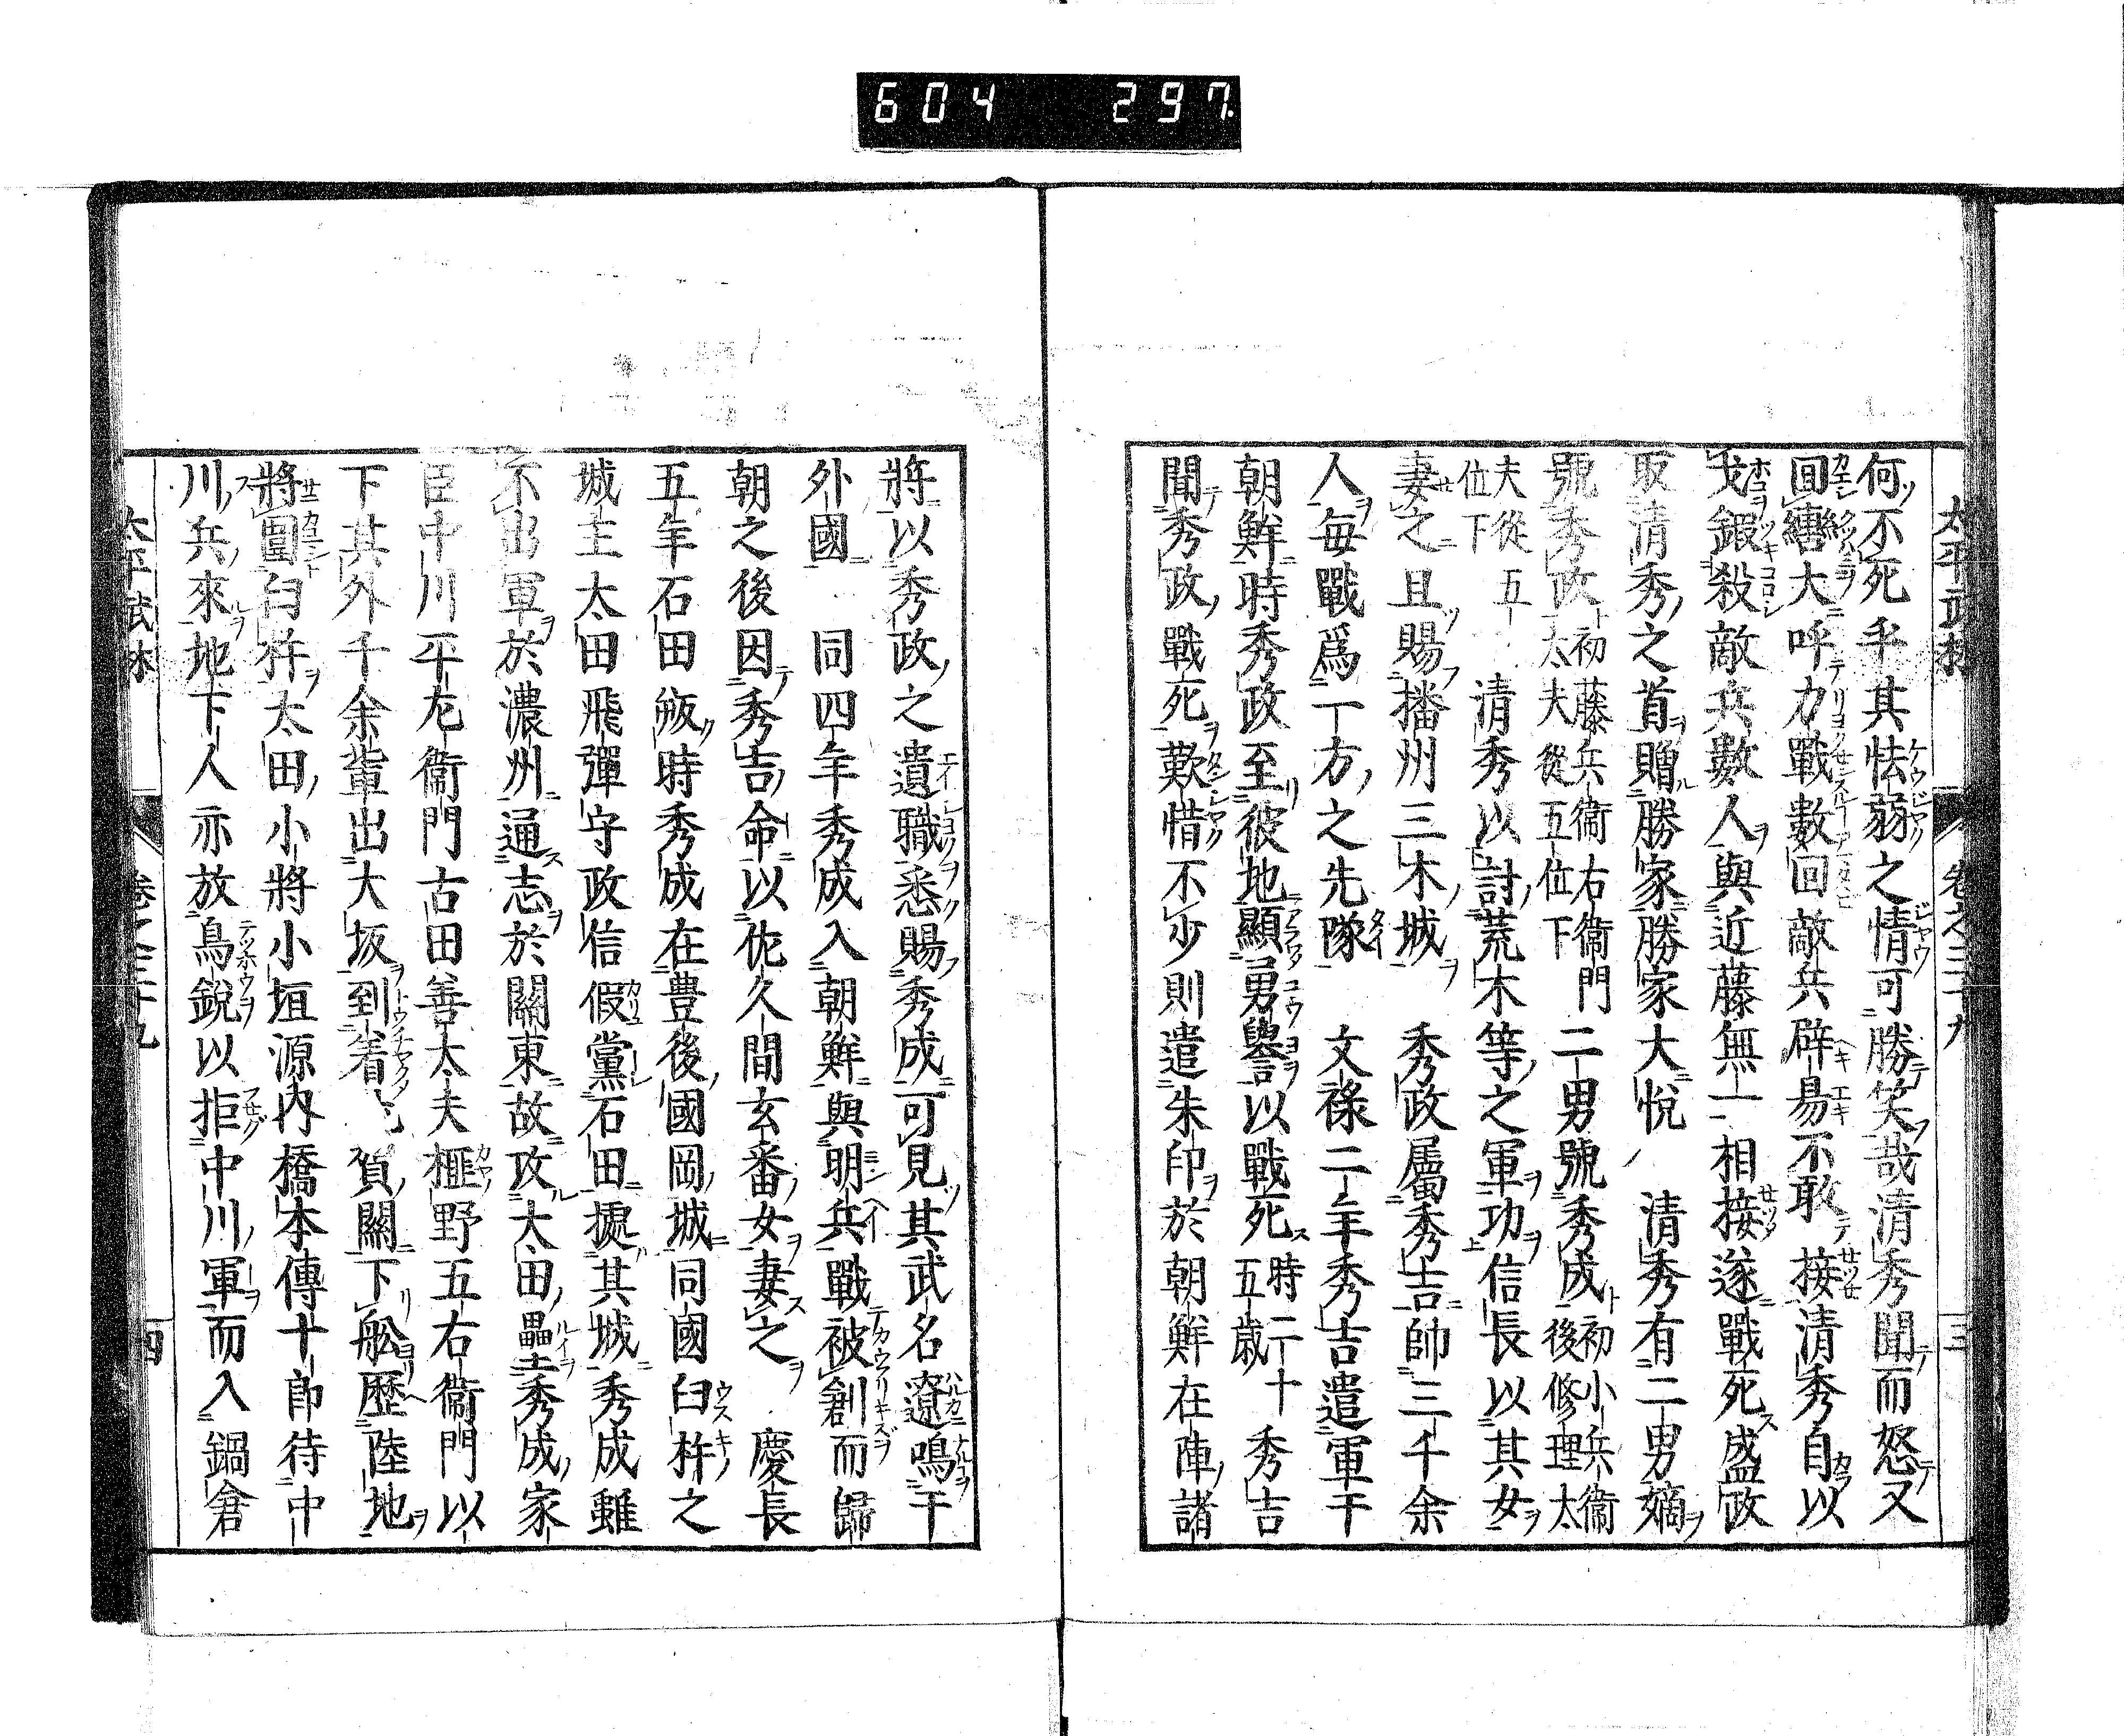 604 297.
太平武林 卷之三十九 三
何不死乎其怯弱之情可勝笑哉清秀聞而怒又
回轡大呼力戰數回敵兵辟易不敢接清秀自以
戈鍜殺敵兵數人與近藤無一相接遂戰死盛政
取清秀之首贈勝家勝家大悅 清秀有二男嫡
號秀政初藤兵衞右衞門太夫從五位下二男號秀成初小兵衞後修理太
夫從五位下 清秀以討荒木等之軍功信長以其女
妻之且賜播州三木城 秀政屬秀吉帥三千余
人每戰爲一方之先隊 文祿二年秀吉遣軍于
朝鮮時秀政至彼地顯勇譽以戰死時二十五歲 秀吉
聞秀政戰死歎惜不少則遣朱印於朝鮮在陣諸
將以秀政之遺職悉賜秀成可見其武名遼鳴于
外國 同四年秀成入朝鮮與明兵戰被創而歸
朝之後因秀吉命以佐久間玄番女妻之 慶長
五年石田叛時秀成在豊後國岡城同國臼杵之
城主太田飛彈守政信假黨石田據其城秀成雖
不出軍於濃州通志於關東故攻大田壘秀成家
臣中川平左衞門古田善太夫榧野五右衞門以
下其外千余軰出大坂到着 賀關下舩歷陸地
將圍臼杵太田小將小垣源內橋本傳十郎待中
川兵來地下人亦放鳥銳以拒中川軍而入鍋倉
太平武林 卷之三十九 四